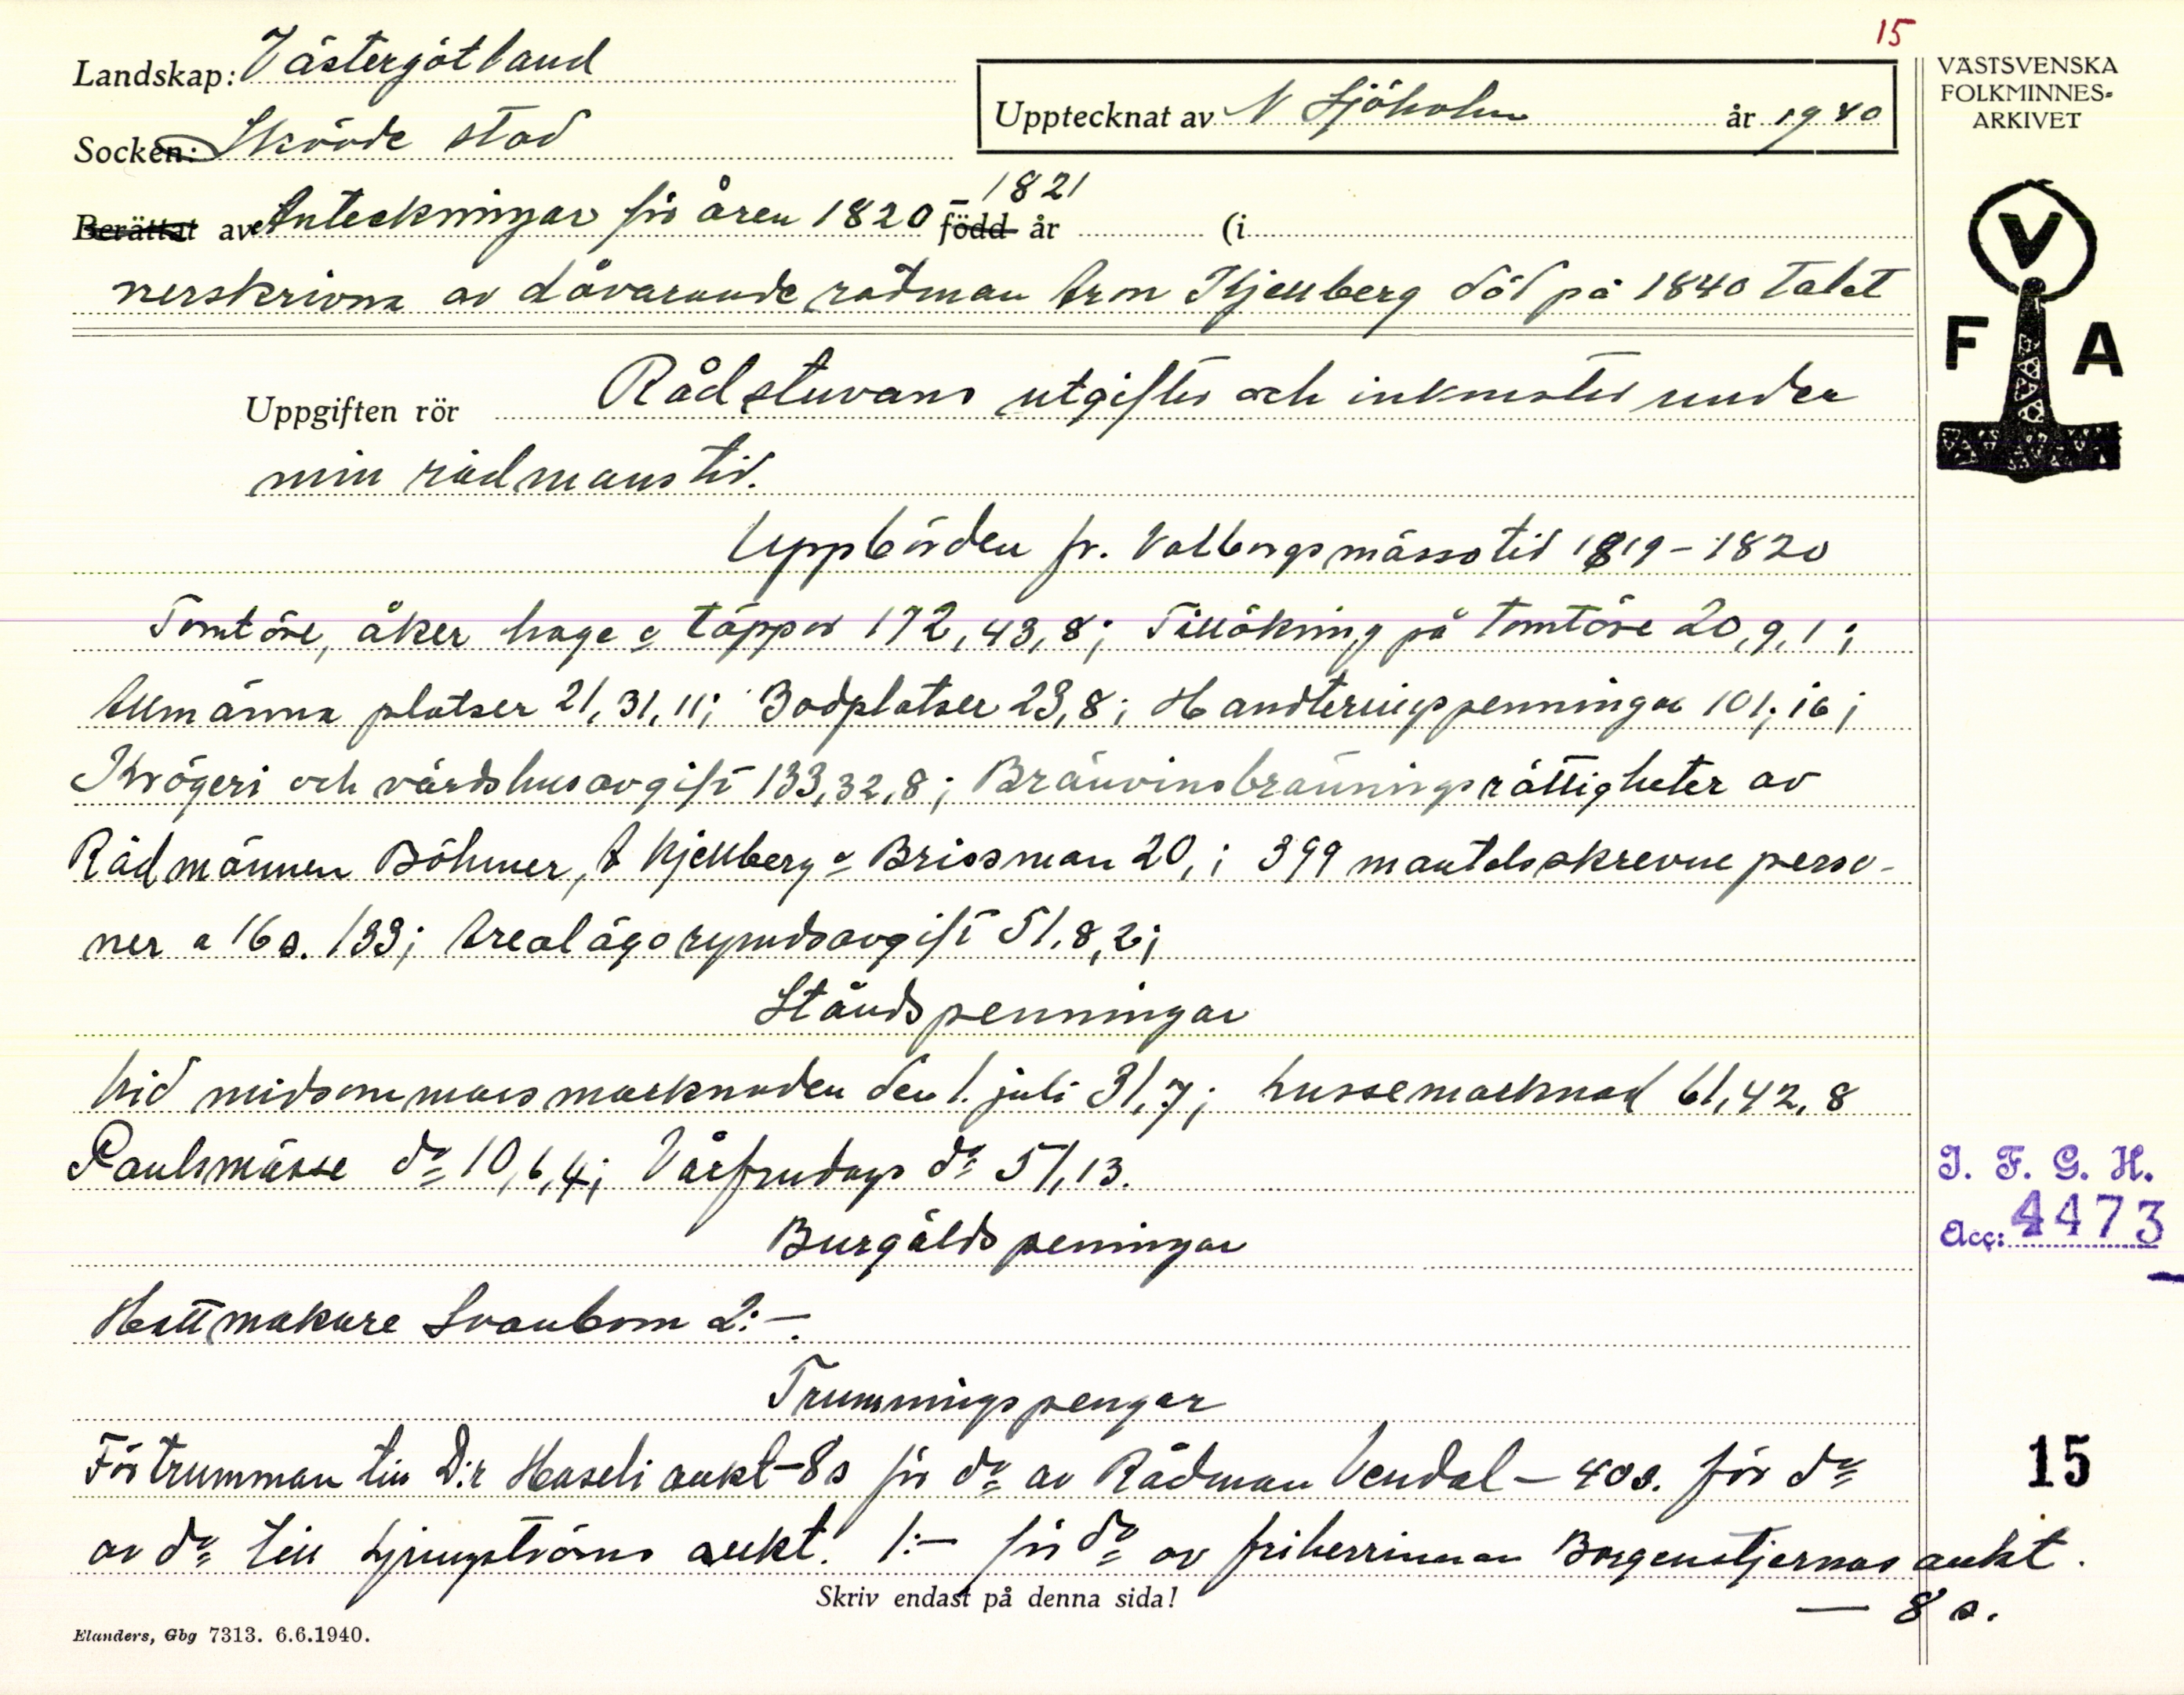 15
Landskap: Västergötland
Socken: Skövde stad
Upptecknat av N Sjöholm år 1940
VÄSTSVENSKA
FOLKMINNES-
ARKIVET
Berättat av Anteckningar för åren 1820 - 1821 född år (i
nerskrivna av dåvarande rådman Aron Kjellberg död på 1840 talet
V
F A
Uppgiften rör Rådstuvans utgifter och inkomster under
min rådmanstid.
Uppbörden fr. Valborgsmässotid 1819 - 1820
Tomtöre, åker hage o täppor 172,43,8; Tillökning på tomtöre 20,9,1;
Allmänna platser 21,31,11; Bodplatser 23,8; Handteringspenningar 101,16;
Krögeri och värdshusavgift 133,32,8; Bränvinsbränningsrättigheter av
Rådmännen Böhmer, A Kjellberg o Brissman 20,; 399 mantalsskrevne perso-
ner a 16 s. 133; Arealägorymdsavgift 51,8,2;
Ståndspenningar
Vid midsommarsmarknaden den 1. juli 31,7; Lussemarknad 61,42,8
Paulsmässe do 10,6,4; Vårfrudags do 51,13.
Burgäldspenningar
Hattmakare Svanbom 2:-.
Trummingspengar
För trumman till D:r Haseli aukt - 8 s för do av Rådman Vendal - 40 s. för do
av do till Ljungströms aukt. 1:- för do av friherrinnan Borgenstjernas aukt.
- 8 s.
J. F. G. H.
Acc: 4473
15
Skriv endast på denna sida!
Elanders, Gbg 7313. 6.6.1940.